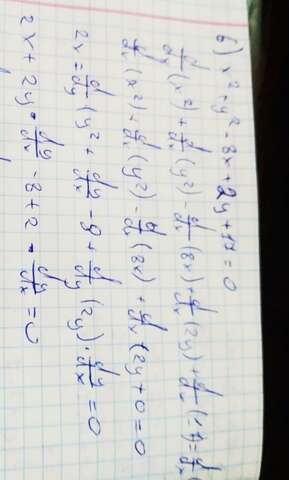 б) x² + y² - 8x + 2y + 17 = 0
d/dx (x²) + d/dx (y²) - d/dx (8x) + d/dx (2y) + d/dx (17) = d/dx (
d/dx (x²) + d/dx (y²) - d/dx (8x) + d/dx (2y + 0 = 0
2x = d/dy (y² + dy/dx - 9 + d/dy (2y) · dy/dx = 0
2x + 2y · dy/dx - 8 + 2 · dy/dx = 0